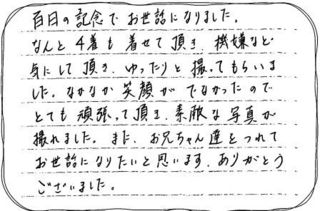 百日の記念でお世話になりました。
なんと4着も着せて頂き 機嫌など
気にして頂き、ゆったりと撮ってもらいま
した。なかなか笑顔がでなかったので
とても頑張って頂き、素敵な写真が
撮れました。また、お兄ちゃん達をつれて
お世話になりたいと思います。ありがとう
ございました。